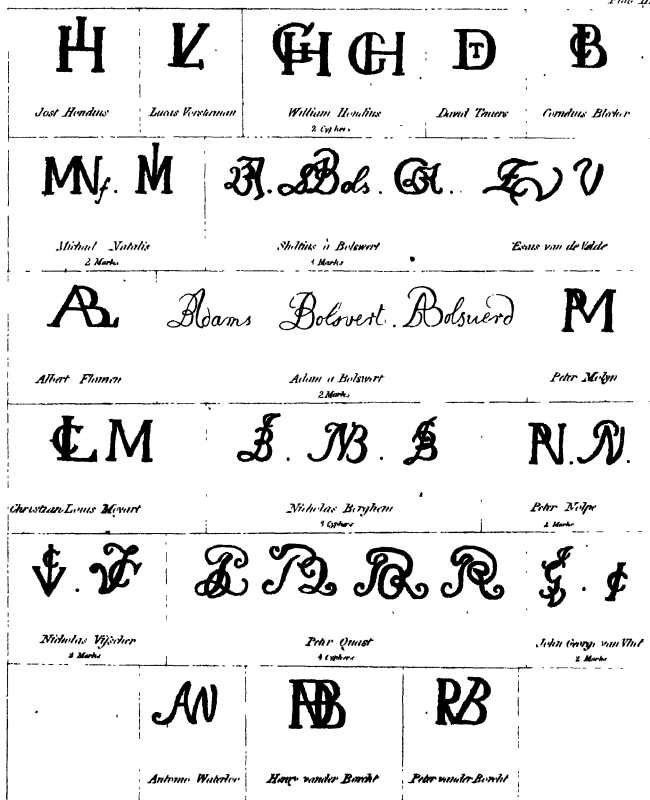 Jost Hondius
Lucas Vorsterman
William Hondius
2 Cyphers
David Teniers
Cornelius Bleker
Michael Natalis
2 Marks
Sheltius à Bolswert
4 Marks
Esaias van de Velde
Adams Bolsvert. ABolsuerd
Albert Flamen
Adam a Bolswert
2 Marks
Peter Molyn
Christian Louis Moyart
Nicholas Berghem
Peter Nolpe
2 Marks
Nicholas Visscher
2 Marks
Peter Quast
4 Cyphers
John George van Vliet
2 Marks
Antonio Waterloo
Henry vander Borcht
Peter vander Borcht